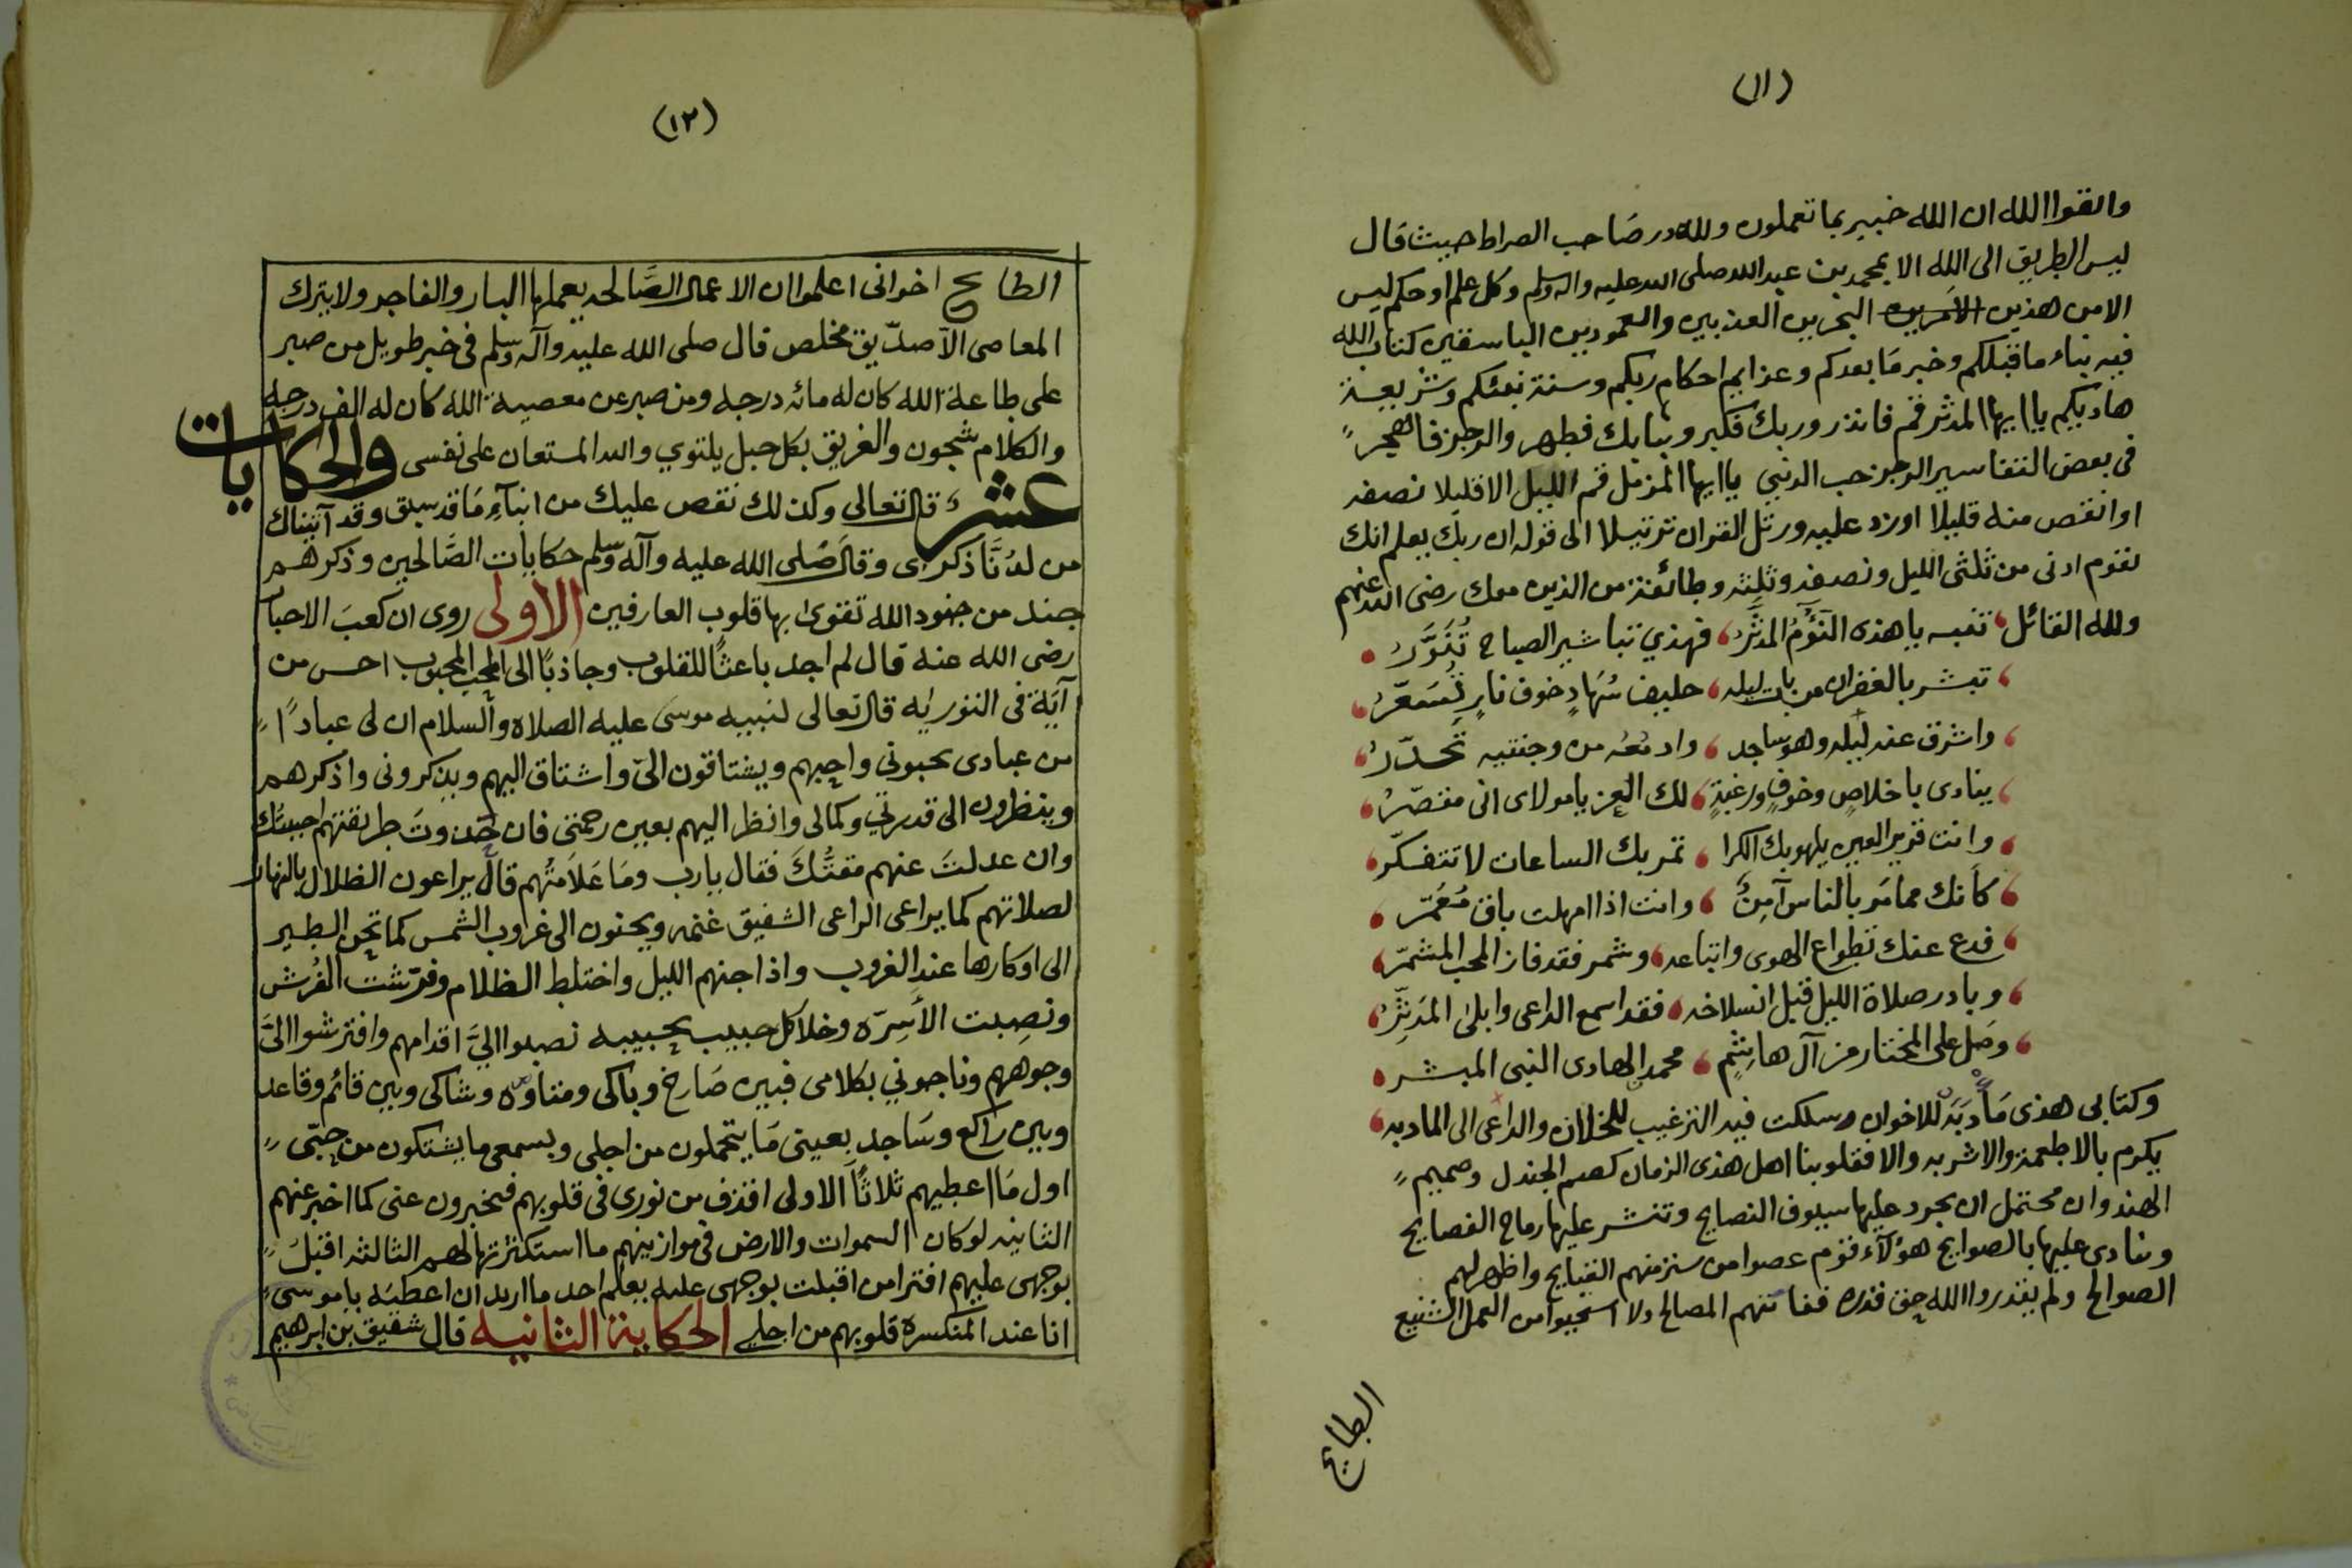 (١١)
واتقوا الله ان الله خبير بما تعملون ولله در صاحب الصراط حيث قال
ليس الطريق الى الله الا بمحمد بن عبد الله صلى الله عليه واله وسلم وكل علم او حكم ليس
الا من هذين البحرين العذبين والعمودين الباسقين كتاب الله
فيه نباء ما قبلكم وخبر مَا بعدكم وعزايم احكام ربكم وسنة نبيكم وشريعة
هاديكم يا ايها المدثر قم فانذر وربك فكبر وثيابك فطهر والرجز فاهجر
في بعض التفاسير الرجز حب الدني يا ايها المزمل قم الليل الا قليلا نصفه
او انقص منه قليلا اوزد عليه ورتل القران ترتيلا الى قوله ان ربك يعلم انك
تقوم ادنى من ثلثى الليل ونصفه وثلثه وطائفة من الذين معك رضى الله عنهم
ولله القائل تنبه يا هذه النَؤُمُ المدَثَّرُ فهذي تباشير الصباح تُنَوَّرُ
تبشر بالغفران من بات ليله حليف سُهَادٍ خوف نارٍ تُسَعَّرُ
واشرق عنه ليله وهو ساجد وادمُعُه من وجنتيه تحدّرُ
ينادى باخلاصٍ وخوفٍ ورغبةٍ لك العز يا مولاى انى مقصّرُ
وانت قرير العين يلهو بك الكرا تمر بك الساعات لا تتفكّر
كأنك مما مَر بالناس آمِنٌ وانت اذا امهلت باق مُعَمّر
فدع عنك تطواع الهوى واتباعه وشمر فقد فاز المحب المشمّر
وبادر صلاة الليل قبل انسلاخه فقد اسمع الداعى وابلى المدَثِّرُ
وصَل على المختار من آل هاشمٍ محمد الهادى النبى المبشر
وكتابى هذى مَأدبَة للاخوان وسلكت فيه الترغيب للخلان والداعى الى المادبه
يكرم بالاطعمة والاشربه والا فقلوبنا اهل هذى الزمان كصم الجندل وصميم
الهندوان محتمل ان يجرد عليها سيوف النصايح وتنشر عليها رماح الفصايح
وينادى عليها بالصوايح هؤلآء قوم عصوا من ستر منهم القبايح واظهر لهم
الصوالح ولم يقدروا الله حق قدره ففاتتهم المصالح ولا استحيوا من العمل الشنيع
الطايح
(١٢)
الطايح اخوانى اعلموا ان الاعمال الصَّالحه يعملها البار والفاجر ولا يترك
المعاصى الا صدّيق مخلص قال صلى الله عليه وآله وسلم في خبر طويل من صبر
على طاعة الله كان له مائه درجه ومن صبر عن معصية الله كان له الف درجة
والكلام شجون والغريق بكل حبل يلتوي والله المستعان على نفسى والحكايات
عشر قال تعالى وكذلك نقص عليك من انبآءِ مَا قد سبق وقد آتيناك
من لدُنَّا ذكرى وقال صَلى الله عليه وآله وسلم حكايات الصَّالحين وذكرهم
جند من جنود الله تقوى بها قلوب العارفين الاولى روى ان كعبَ الاحبار
رضى الله عنه قال لم اجد باعثًا للقلوب وجاذبًا الى المحب المحبوب احسن من
آيَة في التوريٰه قال تعالى لنبيه موسى عليه الصلاة والسلام ان لى عبادًا
من عبادى يحبونى واحبهم ويشتاقون الىّ واشتاق اليهم ويذكرونى واذكرهم
وينظرون الى قدرتي وكمالى وانظر اليهم بعين رحمتى فان حَدوتَ طريقتهم احببتك
وان عدلتَ عنهم مقتُّكَ فقال يا رب ومَا عَلَامَتُهم قال يراعون الظلال بالنهار
لصلاتهم كما يراعى الراعى الشفيق غنمه ويحنون الى غروب الشمس كما تحن الطير
الى اوكارها عند الغروب واذا جنهم الليل واختلط الظلام وفرّشت الفُرش
ونصِبت الأسِرّه وخلا كل حبيب بحبيبه نصبوا اليَّ اقدامهم وافترشوا اليَّ
وجوههم وناجوني بكلامى فبين صَارخ وباكى ومتاوه وشاكى وبين قائم وقاعد
وبين راكع وسَاجد بعينى مَا يتحملون من اجلى وبسمعى ما يشتكون من حبّى
اول مَا اعطيهم ثلاثًا الاولى اقذف من نورى في قلوبهم فيخبرون عنى كما اخبر عنهم
الثانيه لو كان السموات والارض في موازينهم ما استكثرتها لهم الثالثه اقبل
بوجهى عليهم افترا من اقبلت بوجهى عليه يعلم احد ما اريد ان اعطيَه يا موسى
انا عند المنكسرة قلوبهم من اجلى الحكاية الثانيه قال شقيق بن ابرهيم